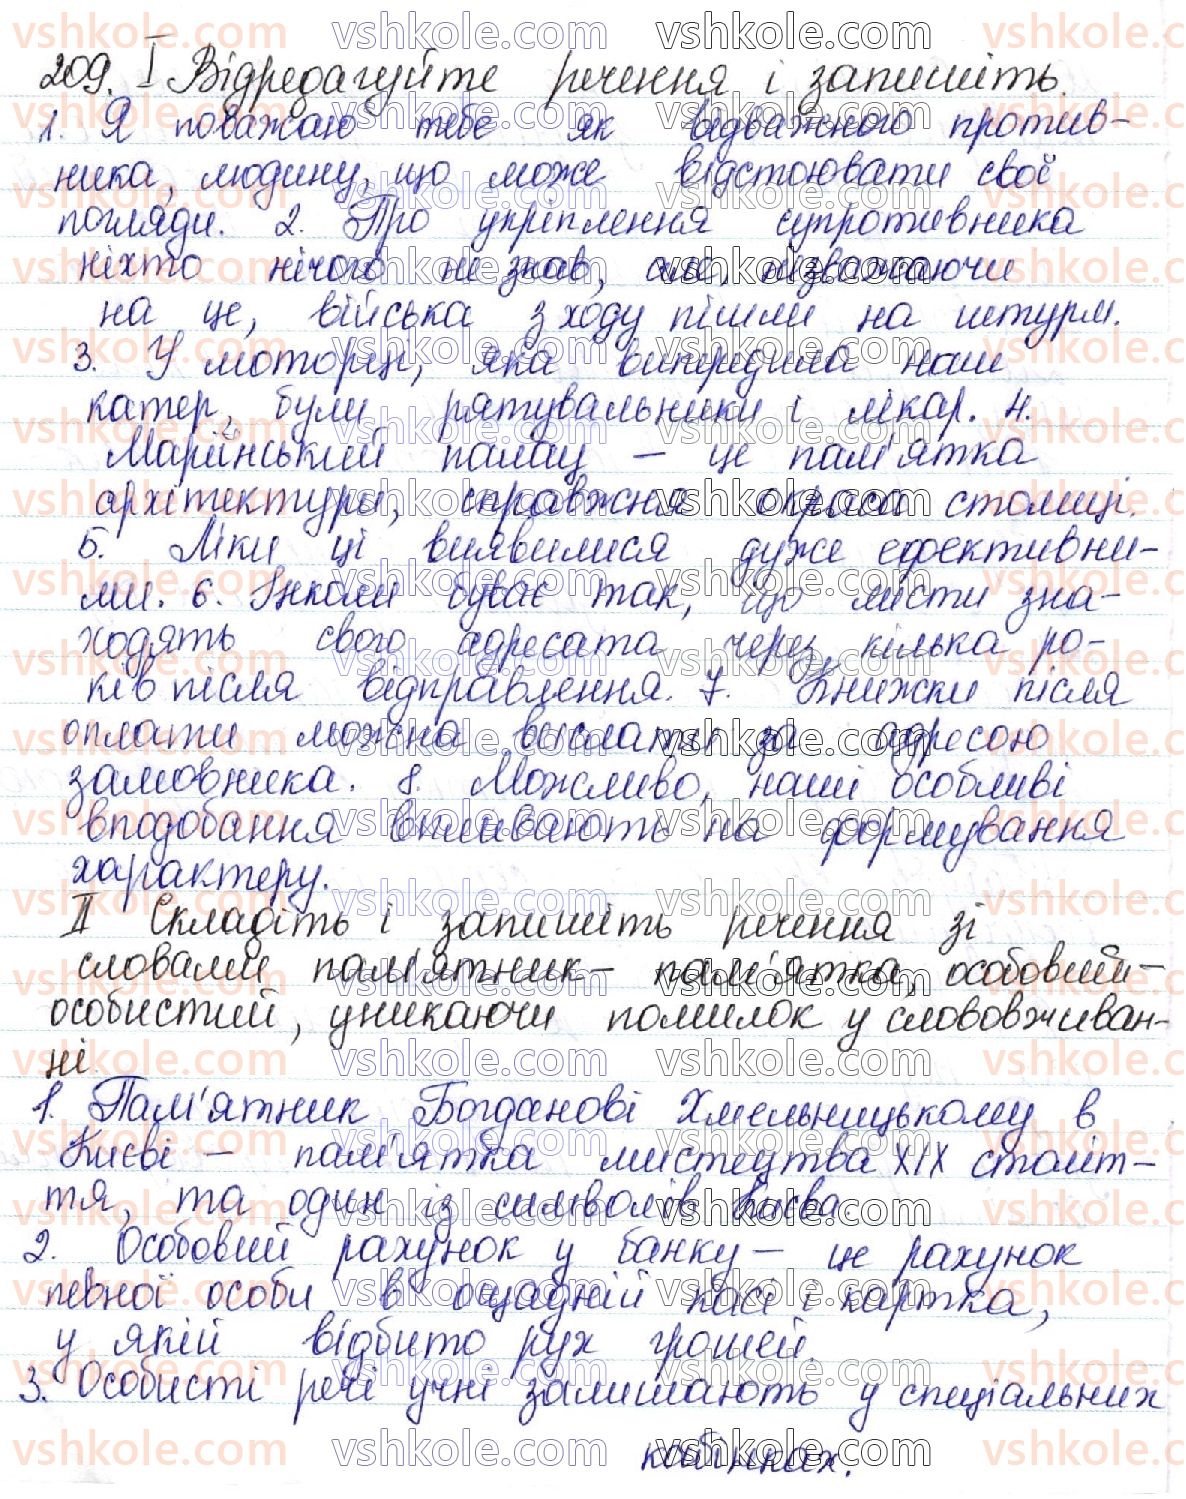 209. I Відредагуйте речення і запишіть.
1. Я поважаю тебе як відважного против-
ника, людину, що може відстоювати свої
погляди. 2. Про укріплення супротивника
ніхто нічого не знав, але, незважаючи
на це, війська з ходу пішли на штурм.
3. У моторці, яка випередила наш
катер, були рятувальники і лікар. 4.
Маріїнський палац – це пам'ятка
архітектури, справжня окраса столиці.
5. Ліки ці виявилися дуже ефективни-
ми. 6. Інколи буває так, що листи зна-
ходять свого адресата через кілька ро-
ків після відправлення. 7. Книжки після
оплати можна вислати за адресою
замовника. 8. Можливо, наші особливі
вподобання впливають на формування
характеру.
II Складіть і запишіть речення зі
словами пам'ятник – пам'ятка, особовий –
особистий, уникаючи помилок у слововживан-
ні
1. Пам'ятник Богданові Хмельницькому в
Києві – пам'ятка мистецтва XIX століт-
тя, та один із символів Києва.
2. Особовий рахунок у банку – це рахунок
певної особи в ощадній касі і картка,
у якій відбито рух грошей.
3. Особисті речі учні залишають у спеціальних
кабінках.